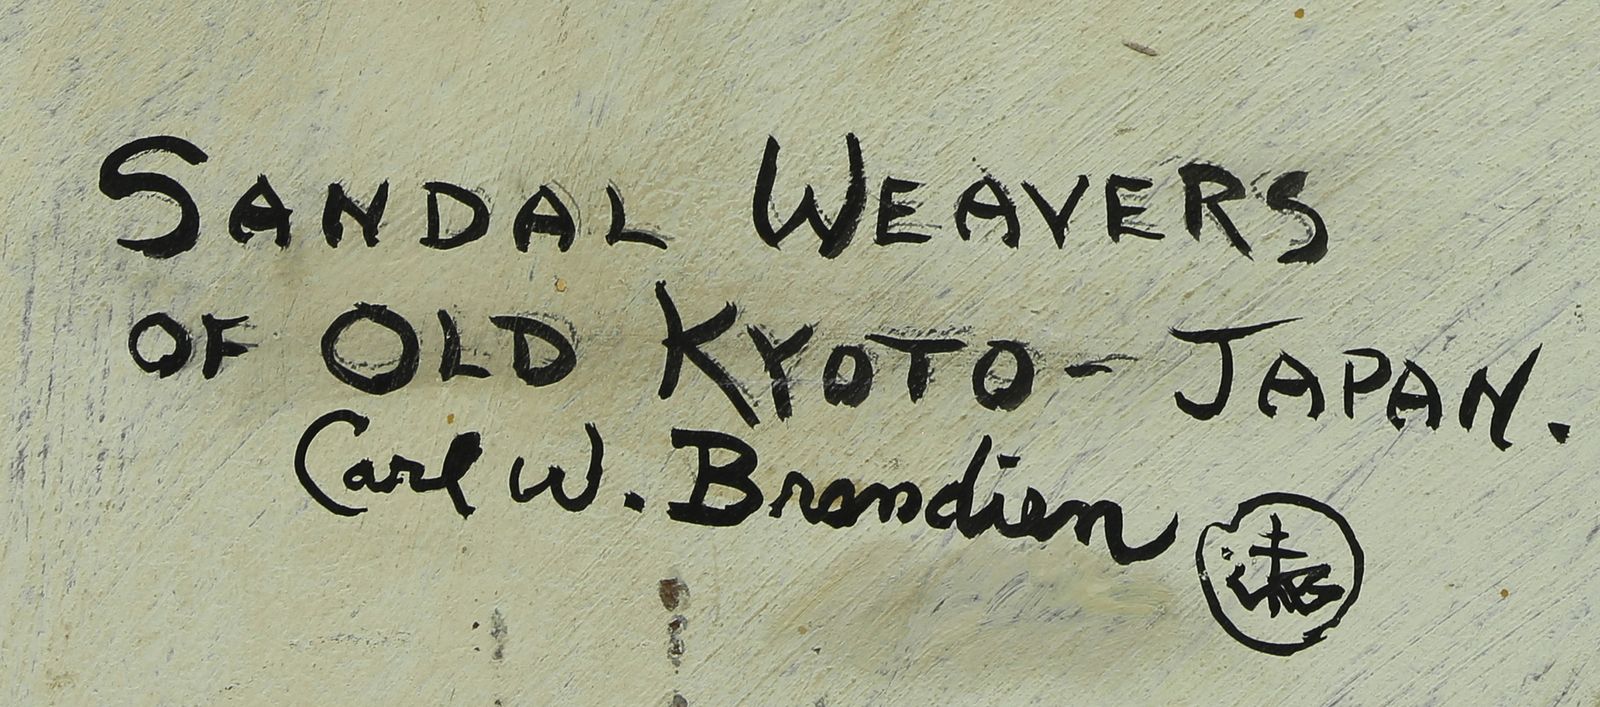 SANDAL WEAVERS
OF OLD KYOTO - JAPAN.
Carl W. Brandien